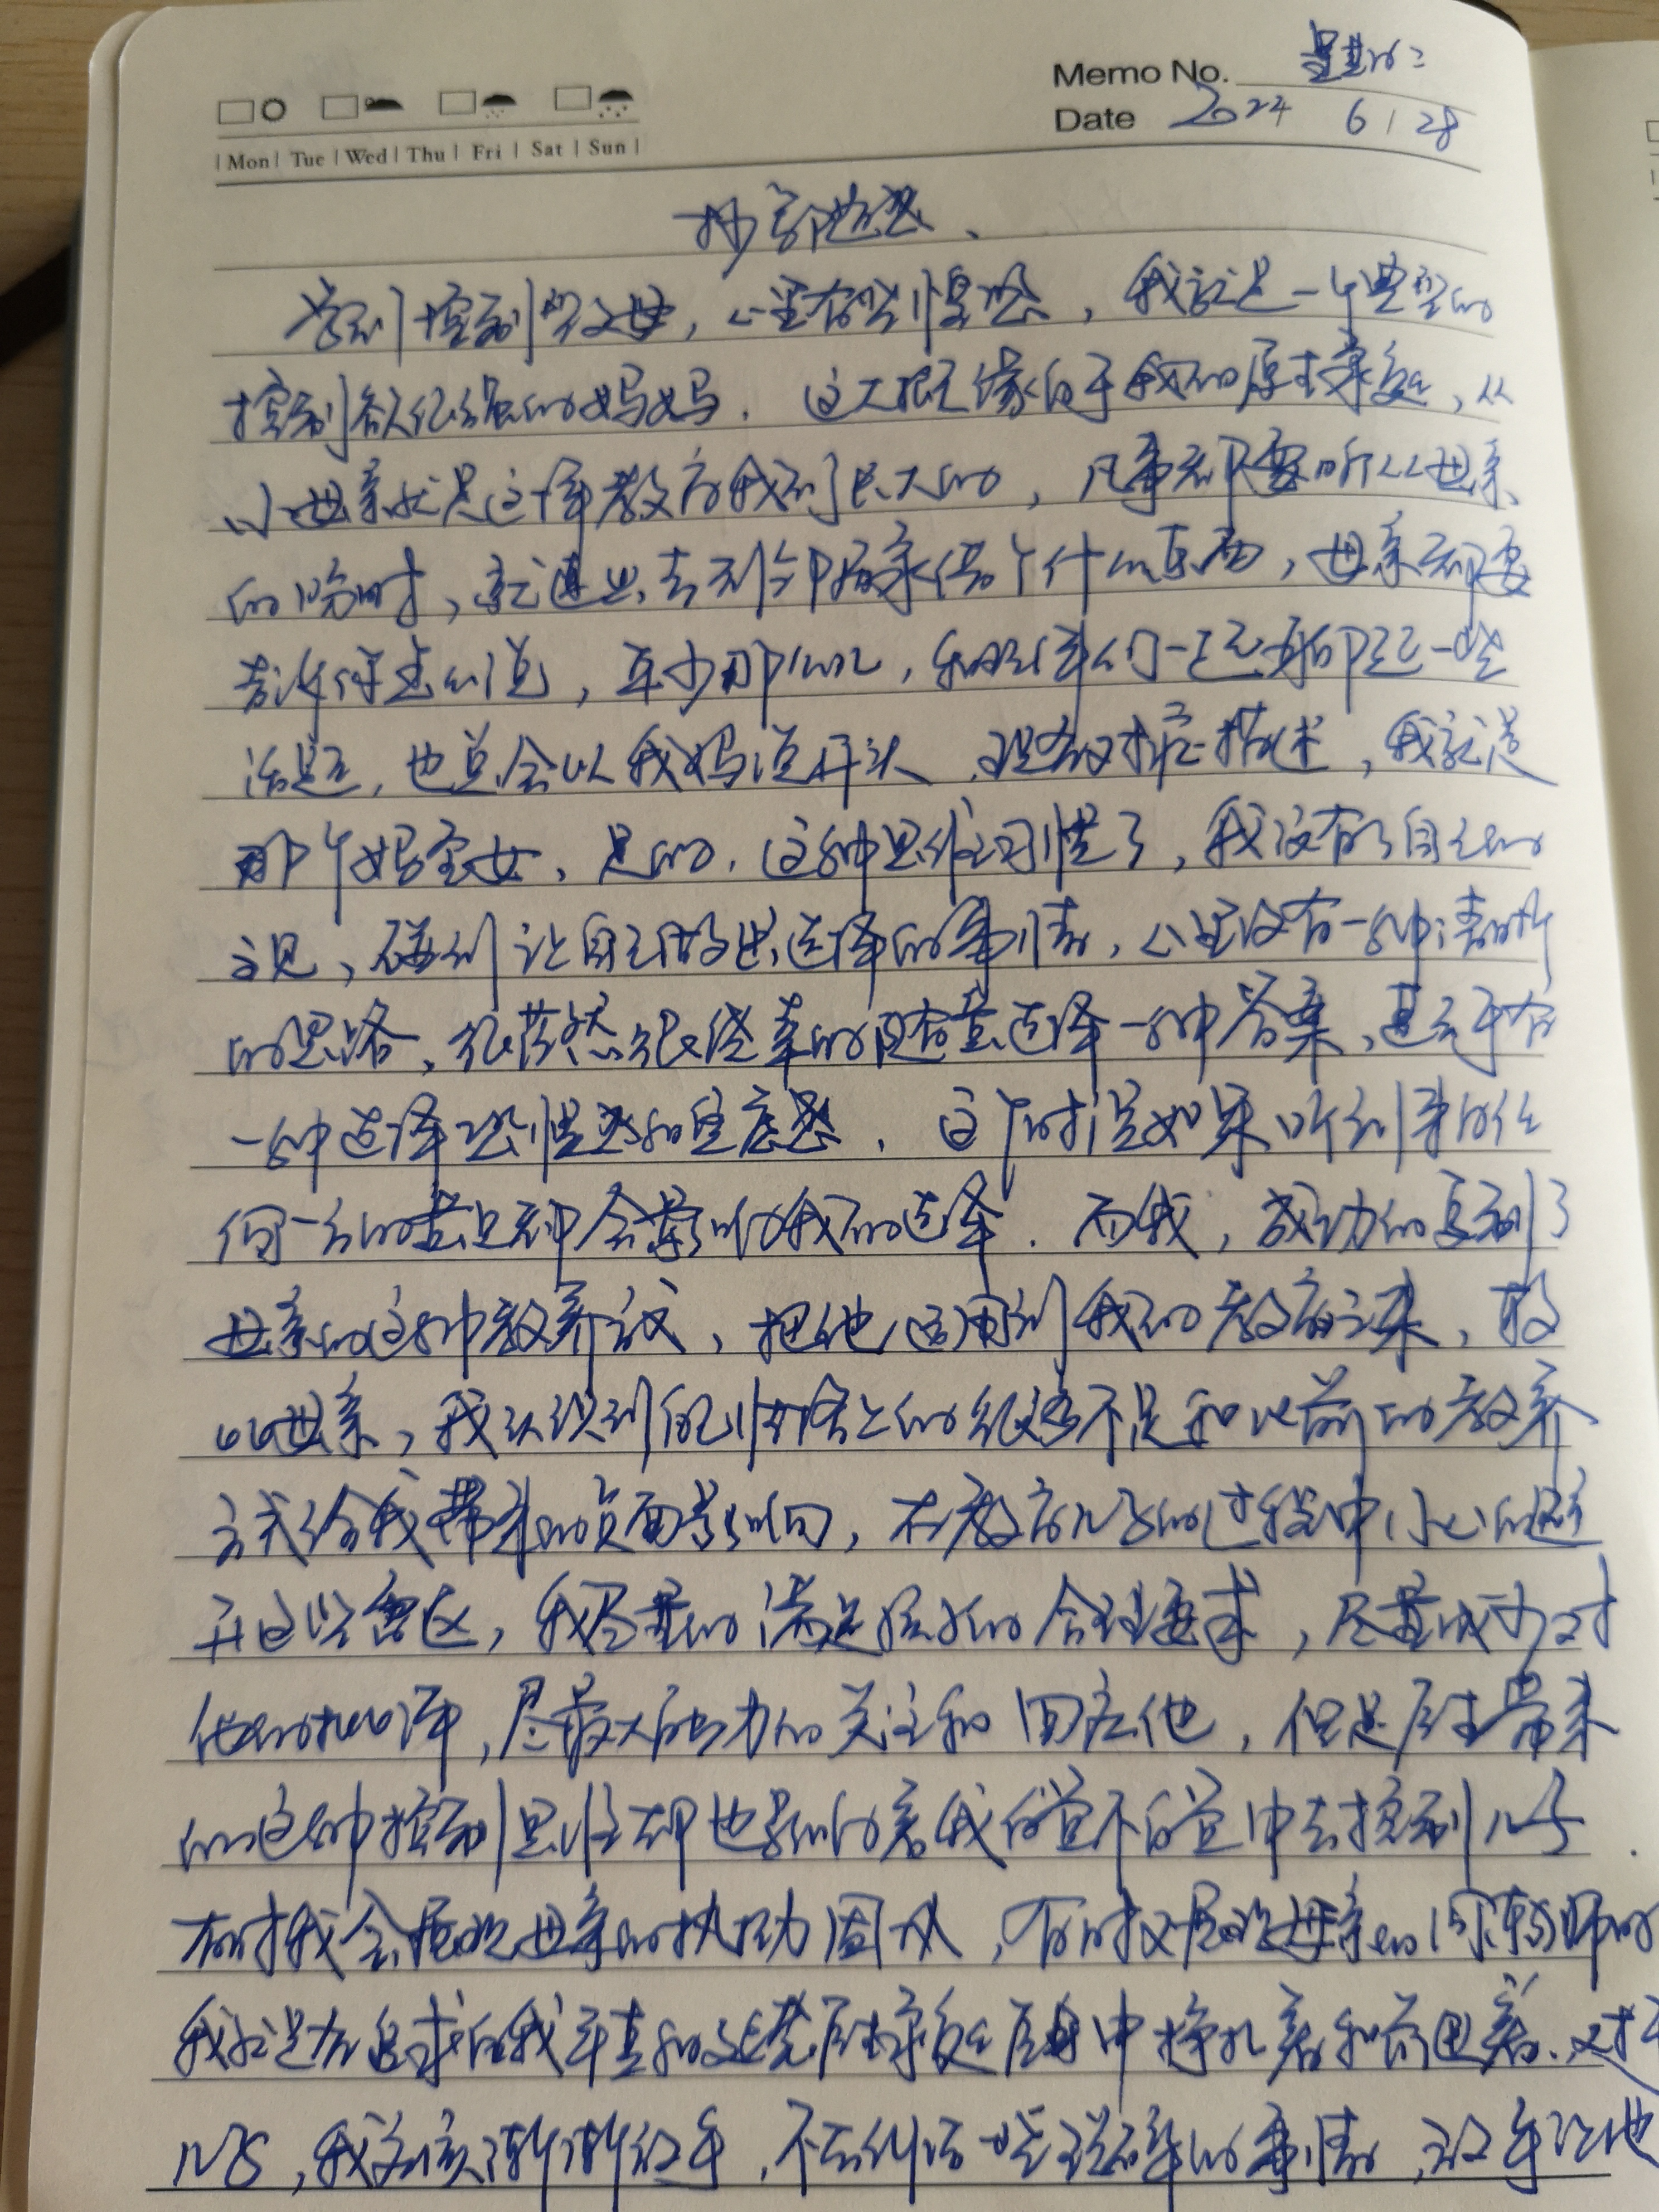 Memo No. 星期三
Date 2024 6/28
| Mon | Tue | Wed | Thu | Fri | Sat | Sun |
抄写随感、
学到控制型父母，心里有些惶恐，我就是一个典型的
控制欲很强的妈妈．这大概缘自于我的原生家庭，从
小母亲就是这样教育我到长大的，凡事都要听从母亲
的吩咐，就连出去到邻居家借个什么东西，母亲都要
告诉得怎么说，年少那会儿，和朋伴们一起聊起一些
话题，也总会以我妈说开头．现在对症描述，我就是
那个妈宝女、是的．这种思维习惯了，我没有了自己的
主见，碰到让自己做出选择的事情，心里没有一种清晰
的思路、很茫然很轻率的随意选择一种答案，甚至于有
一种选择恐惧感和自卑感．这个时候如果听到来自任
何一方的意见都会影响我的选择．而我，成功的复制了
母亲的这种教养方式，把他运用到我的教育之来，
母亲，我认识到自己性格上的很多不足和以前的教养
方式给我带来的负面影响，在教育儿子的过程中小心的避
开这些雷区，我尽量的满足孩子的合理要求，尽量减少对
他的批评，尽最大能力的关注和回应他，但是原生带来
的这种控制思维却也影响着我自觉不自觉中去控制儿子．
有时我会抱怨母亲的执拗固执，有时又抱怨母亲的
我就是在追求自我年直和这原生家庭中挣扎着和前进着．对于
儿子，我应该渐渐放手，不去纠结一些琐碎的事情，放手让他